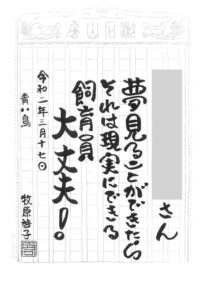 さん
夢見ることができたら
それは現実にできる
飼育員
大丈夫!。
令和二年三月十七日
青い鳥
牧原